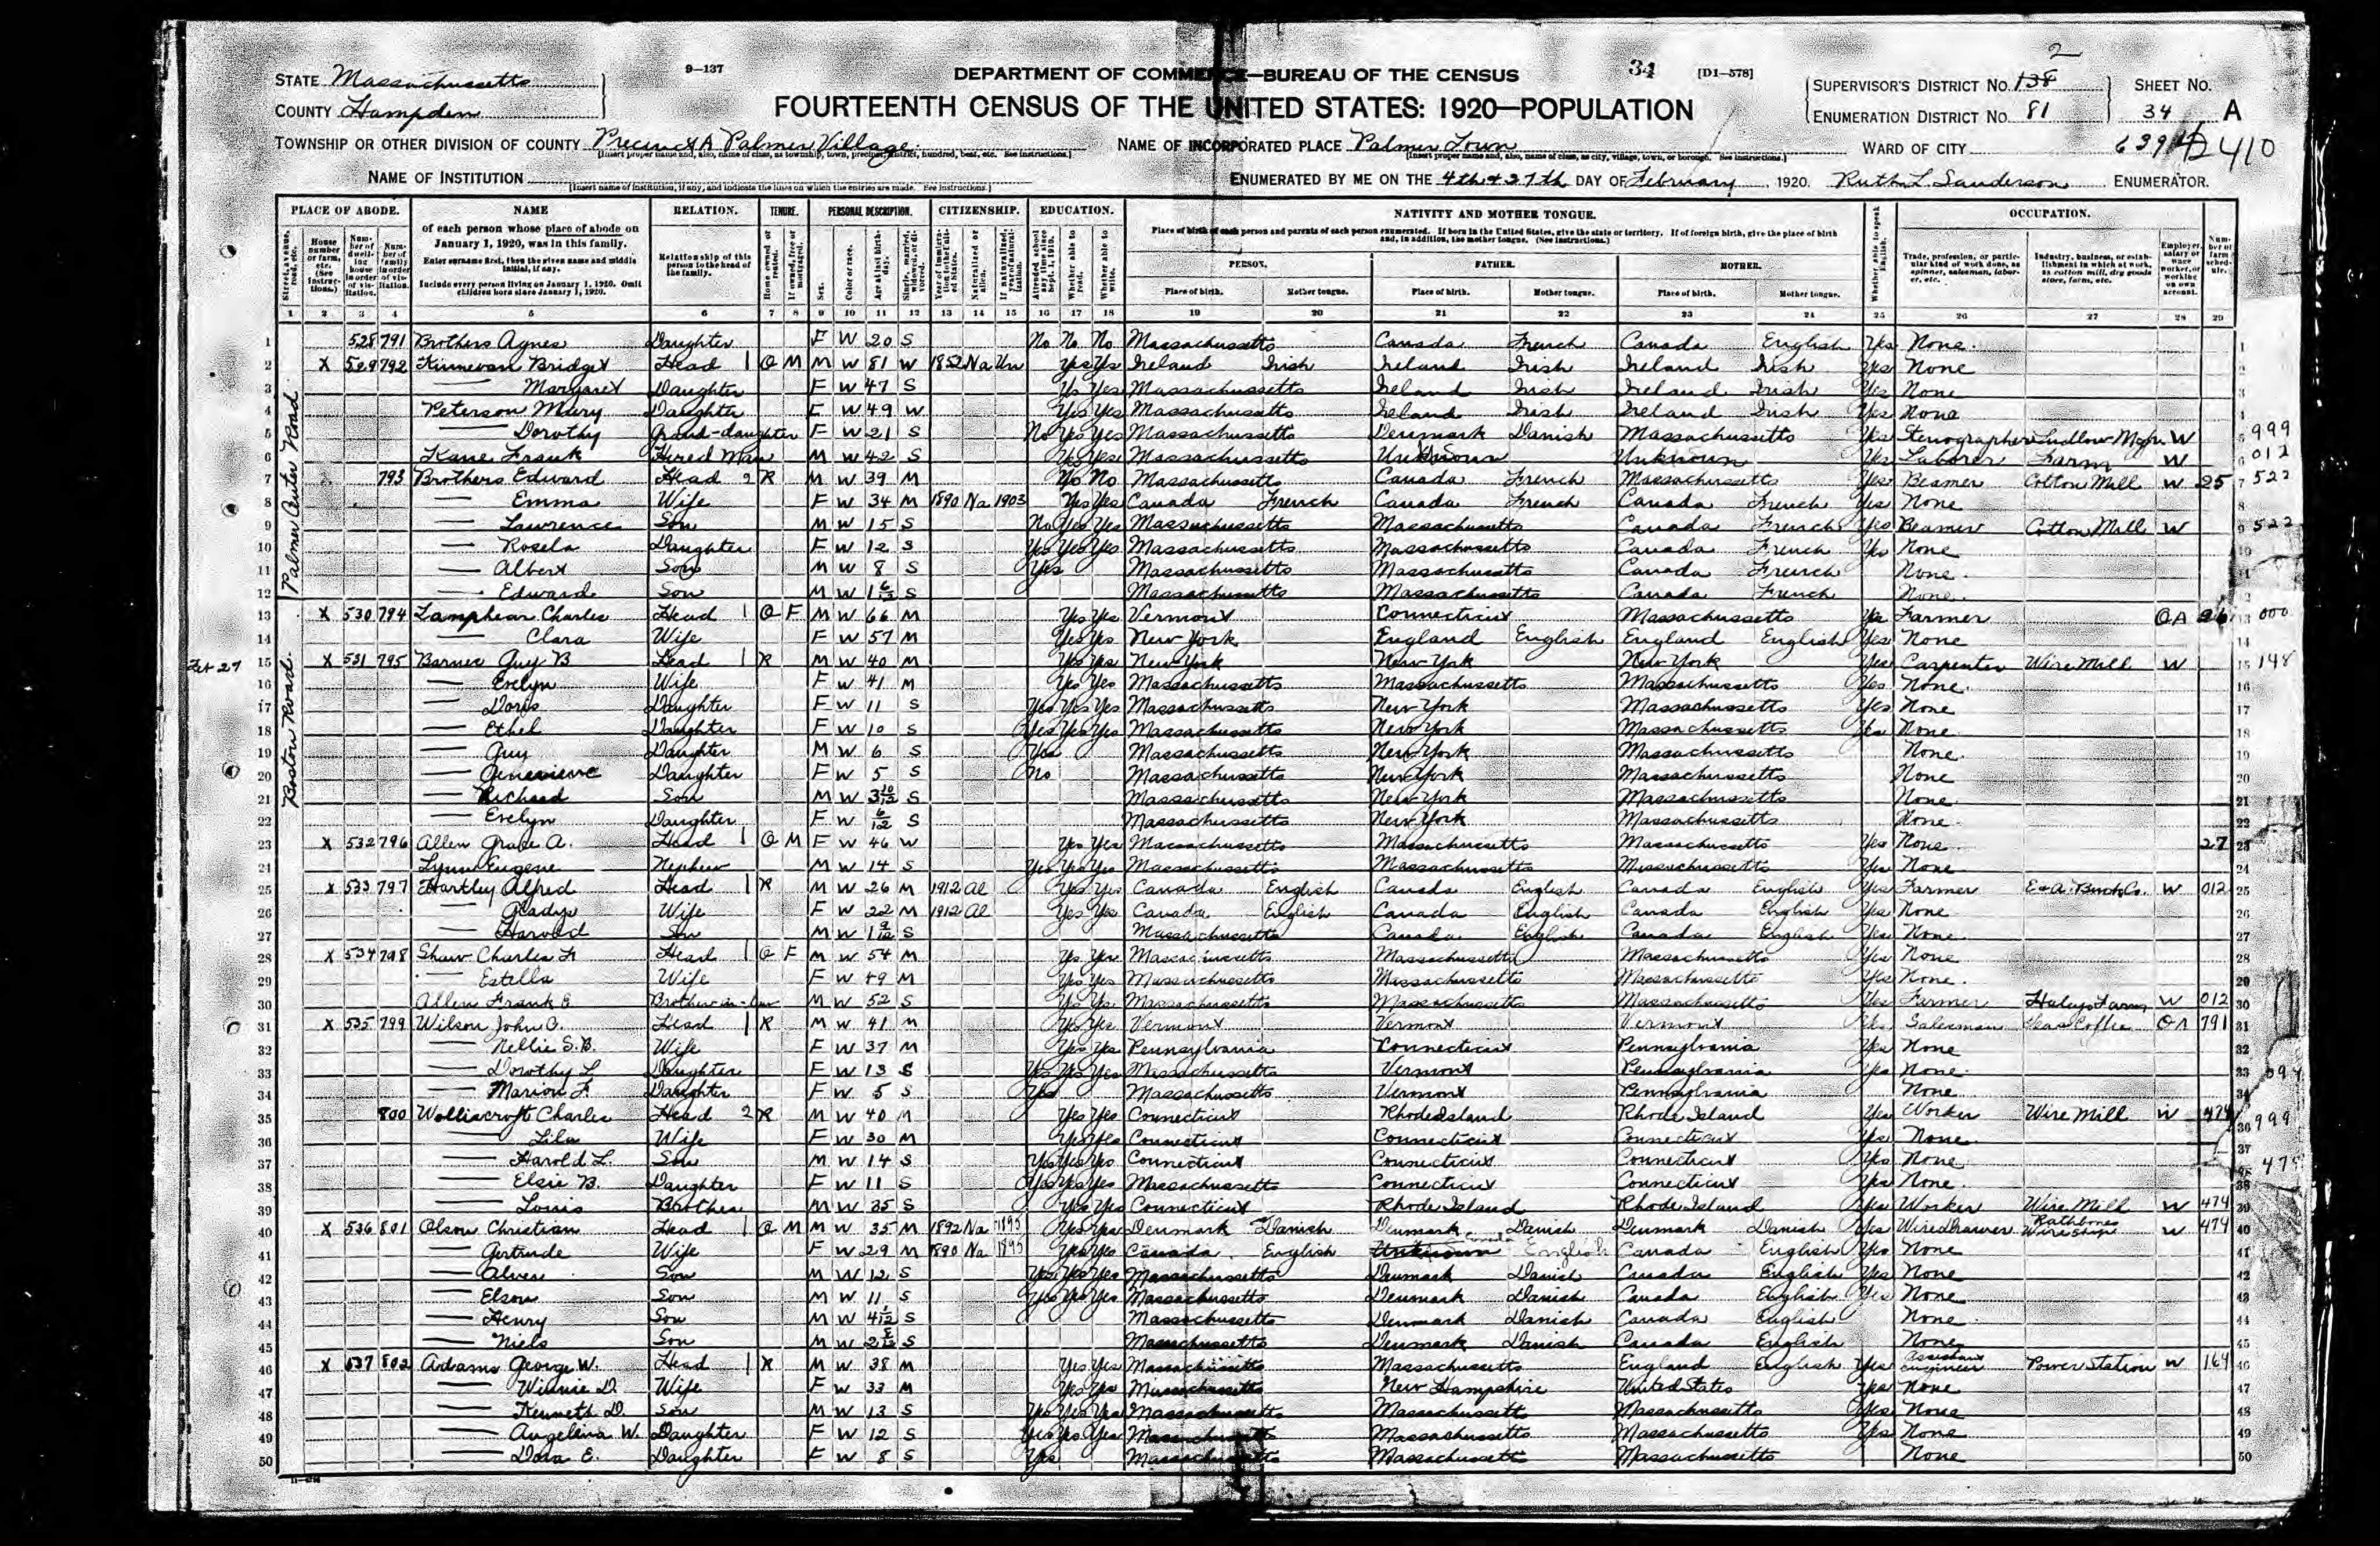 2
9–137 DEPARTMENT OF COMMERCE—BUREAU OF THE CENSUS 34 [D1—578]
STATE Massachussetts SUPERVISOR'S DISTRICT NO. 138 SHEET NO.
COUNTY Hampden FOURTEENTH CENSUS OF THE UNITED STATES: 1920—POPULATION ENUMERATION DISTRICT NO. 81 34 A
TOWNSHIP OR OTHER DIVISION OF COUNTY Precinct A Palmer Village NAME OF INCORPORATED PLACE Palmer Town WARD OF CITY
NAME OF INSTITUTION ENUMERATED BY ME ON THE 4th & 27th DAY OF February, 1920. Ruth L. Sanderson ENUMERATOR.
PLACE OF ABODE. NAME RELATION. TENURE. PERSONAL DESCRIPTION. CITIZENSHIP. EDUCATION. NATIVITY AND MOTHER TONGUE. OCCUPATION.
of each person whose place of abode on January 1, 1920, was in this family.
Enter surname first, then the given name and middle initial, if any.
Include every person living on January 1, 1920. Omit children born since January 1, 1920.
Relationship of this person to the head of the family.
PERSON. FATHER. MOTHER.
Place of birth. Mother tongue. Place of birth. Mother tongue. Place of birth. Mother tongue.
1 2 3 4 5 6 7 8 9 10 11 12 13 14 15 16 17 18 19 20 21 22 23 24 25 26 27 28 29
Palmer Outer Road
Boston Road
1 528 791 Brothers Agnes Daughter F W 20 S No No No Massachussetts Canada French Canada English Yes None 1
2 X 529 792 Kinnevan Bridget Head 1 O M M W 81 W 1852 Na Un Yes Yes Ireland Irish Ireland Irish Ireland Irish Yes None 2
3 — Margaret Daughter F W 47 S Yes Yes Massachussetts Ireland Irish Ireland Irish Yes None 3
4 Peterson Mary Daughter F W 49 W Yes Yes Massachussetts Ireland Irish Ireland Irish Yes None 4
5 — Dorothy Grand-daughter F W 21 S No Yes Yes Massachussetts Denmark Danish Massachussetts Yes Stenographer Ludlow Mfg W 5 999
6 Kane Frank Hired Man M W 42 S Yes Yes Massachussetts Unknown Unknown Yes Laborer Farm W 6 012
7 793 Brothers Edward Head 2 R M W 39 M No No Massachussetts Canada French Massachussetts Yes Beamer Cotton Mill W 25 7 522
8 — Emma Wife F W 34 M 1890 Na 1903 Yes Yes Canada French Canada French Canada French Yes None 8
9 — Lawrence Son M W 15 S No Yes Yes Massachussetts Massachussetts Canada French Yes Beamer Cotton Mill W 9 522
10 — Rosela Daughter F W 12 S Yes Yes Yes Massachussetts Massachussetts Canada French Yes None 10
11 — Albert Son M W 8 S Yes Massachussetts Massachussetts Canada French None 11
12 — Edward Son M W 1 6/12 S Massachussetts Massachussetts Canada French None 12
13 X 530 794 Lamphear Charles Head 1 O F M W 66 M Yes Yes Vermont Connecticut Massachussetts Yes Farmer OA 26 13 000
14 — Clara Wife F W 57 M Yes Yes New York England English England English Yes None 14
Feb 27 15 X 531 795 Barnes Guy B Head 1 R M W 40 M Yes Yes New York New York New York Yes Carpenter Wire Mill W 15 148
16 — Evelyn Wife F W 41 M Yes Yes Massachussetts Massachussetts Massachussetts Yes None 16
17 — Doris Daughter F W 11 S Yes Yes Yes Massachussetts New York Massachussetts Yes None 17
18 — Ethel Daughter F W 10 S Yes Yes Yes Massachussetts New York Massachussetts Yes None 18
19 — Guy Daughter M W 6 S Yes Massachussetts New York Massachussetts None 19
20 — Genevieve Daughter F W 5 S No Massachussetts New York Massachussetts None 20
21 — Richard Son M W 3 10/12 S Massachussetts New York Massachussetts None 21
22 — Evelyn Daughter F W 6/12 S Massachussetts New York Massachussetts None 22
23 X 532 796 Allen Grace A. Head 1 O M F W 46 W Yes Yes Massachussetts Massachussetts Massachussetts Yes None 27 23
24 Lynn Eugene Nephew M W 14 S Yes Yes Yes Massachussetts Massachussetts Massachussetts Yes None 24
25 X 533 797 Hartley Alfred Head 1 R M W 26 M 1912 Al Yes Yes Canada English Canada English Canada English Yes Farmer W 012 25
26 — Gladys Wife F W 22 M 1912 Al Yes Yes Canada English Canada English Canada English Yes None 26
27 — Harold Son M W 1 9/12 S Massachussetts Canada English Canada English Yes None 27
28 X 534 798 Shaw Charles F Head 1 O F M W 54 M Yes Yes Massachussetts Massachussetts Massachussetts Yes None 28
29 — Estella Wife F W 49 M Yes Yes Massachussetts Massachussetts Massachussetts Yes None 29
30 Allen Frank E Brother-in-law M W 52 S Yes Yes Massachussetts Massachussetts Massachussetts Yes Farmer Haleys Farm W 012 30
31 X 535 799 Wilson John O. Head 1 R M W 41 M Yes Yes Vermont Vermont Vermont Yes Salesman Teas Coffee OA 791 31
32 — Nellie S.B. Wife F W 37 M Yes Yes Pennsylvania Connecticut Pennsylvania Yes None 32
33 — Dorothy L Daughter F W 13 S Yes Yes Yes Massachussetts Vermont Pennsylvania Yes None 33
34 — Marion F. Daughter F W 5 S Yes Massachussetts Vermont Pennsylvania None 34
35 800 Wolliscroft Charles Head 2 R M W 40 M Yes Yes Connecticut Rhode Island Rhode Island Yes Worker Wire Mill W 474
36 — Lila Wife F W 30 M Yes Yes Connecticut Connecticut Connecticut Yes None 36 999
37 — Harold L. Son M W 14 S Yes Yes Yes Connecticut Connecticut Connecticut Yes None 37
38 — Elsie B. Daughter F W 11 S Yes Yes Yes Massachussetts Connecticut Connecticut Yes None 38
39 — Louis Brother M W 35 S Yes Yes Connecticut Rhode Island Rhode Island Yes Worker Wire Mill W 474 39
40 X 536 801 Olson Christian Head 1 O M M W 35 M 1892 Na 1895 Yes Yes Denmark Danish Denmark Danish Denmark Danish Yes Wire Drawer Rathbones Wire Shop W 474 40
41 — Gertrude Wife F W 29 M 1890 Na 1895 Yes Yes Canada English Unknown Canada English Canada English Yes None 41
42 — Alven Son M W 12 S Yes Yes Yes Massachussetts Denmark Danish Canada English Yes None 42
43 — Elson Son M W 11 S Yes Yes Yes Massachussetts Denmark Danish Canada English Yes None 43
44 — Henry Son M W 4 1/12 S Massachussetts Denmark Danish Canada English None 44
45 — Niels Son M W 2 8/12 S Massachussetts Denmark Danish Canada English None 45
46 X 537 802 Adams George W. Head 1 R M W 38 M Yes Yes Massachussetts Massachussetts England English Yes Assistant Engineer Power Station W 164 46
47 — Winnie D. Wife F W 33 M Yes Yes Massachussetts New Hampshire United States Yes None 47
48 — Kenneth D. Son M W 13 S Yes Yes Yes Massachussetts Massachussetts Massachussetts Yes None 48
49 — Angelina W. Daughter F W 12 S Yes Yes Yes Massachussetts Massachussetts Massachussetts Yes None 49
50 — Dora E. Daughter F W 8 S Yes Massachussetts Massachussetts Massachussetts None 50